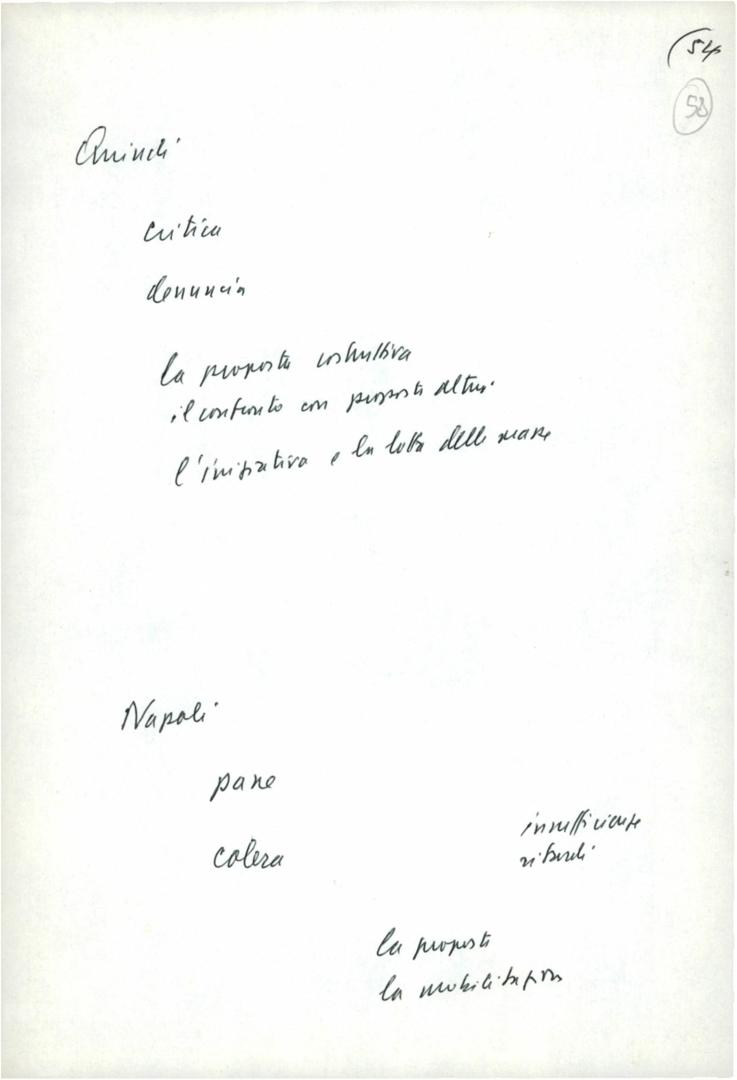 (54
58
Quindi
critica
denuncia
la proposta costruttiva
il confronto con proposte altrui
l'iniziativa e la lotta delle masse
Napoli
pane
colera
insufficienze
ritardi
la proposta
la mobilitazione